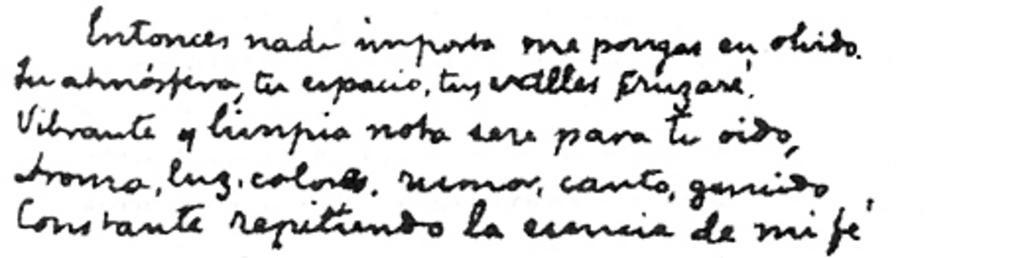 Entonces nada importa me pongas en olvido.
Tu atmósfera, tu espacio, tus valles cruzaré,
Vibrante y limpia nota seré para tu oido,
Aroma, luz, colores, rumor, canto, gemido,
Constante repitiendo la esencia de mi fé